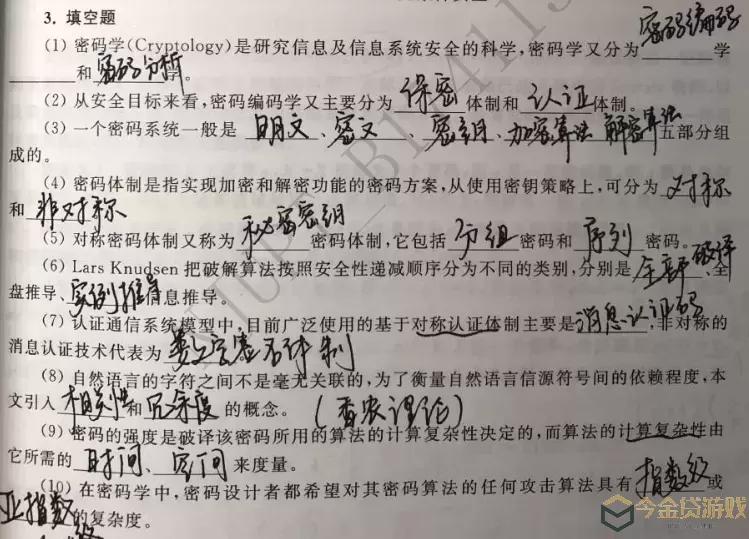 3. 填空题
(1) 密码学(Cryptology)是研究信息及信息系统安全的科学,密码学又分为 密码编码 学
和 密码分析 。
(2) 从安全目标来看,密码编码学又主要分为 保密 体制和 认证 体制。
(3) 一个密码系统一般是 明文 、 密文 、 密钥 、 加密算法 解密算法 五部分组
成的。
(4) 密码体制是指实现加密和解密功能的密码方案,从使用密钥策略上,可分为 对称
和 非对称
(5) 对称密码体制又称为 秘密密钥 密码体制,它包括 分组 密码和 序列 密码。
(6) Lars Knudsen 把破解算法按照安全性递减顺序分为不同的类别,分别是 全部破译 、全
盘推导、 实例推导 息推导。
(7) 认证通信系统模型中,目前广泛使用的基于对称认证体制主要是 消息认证码 ,非对称的
消息认证技术代表为 数字签名体制
(8) 自然语言的字符之间不是毫无关联的,为了衡量自然语言信源符号间的依赖程度,本
文引入 相关性 和 冗余度 的概念。 (香农理论)
(9) 密码的强度是破译该密码所用的算法的计算复杂性决定的,而算法的计算复杂性由
它所需的 时间 、 空间 来度量。
(10) 在密码学中,密码设计者都希望对其密码算法的任何攻击算法具有 指数级 或
亚指数级 的复杂度。
今金贷游戏